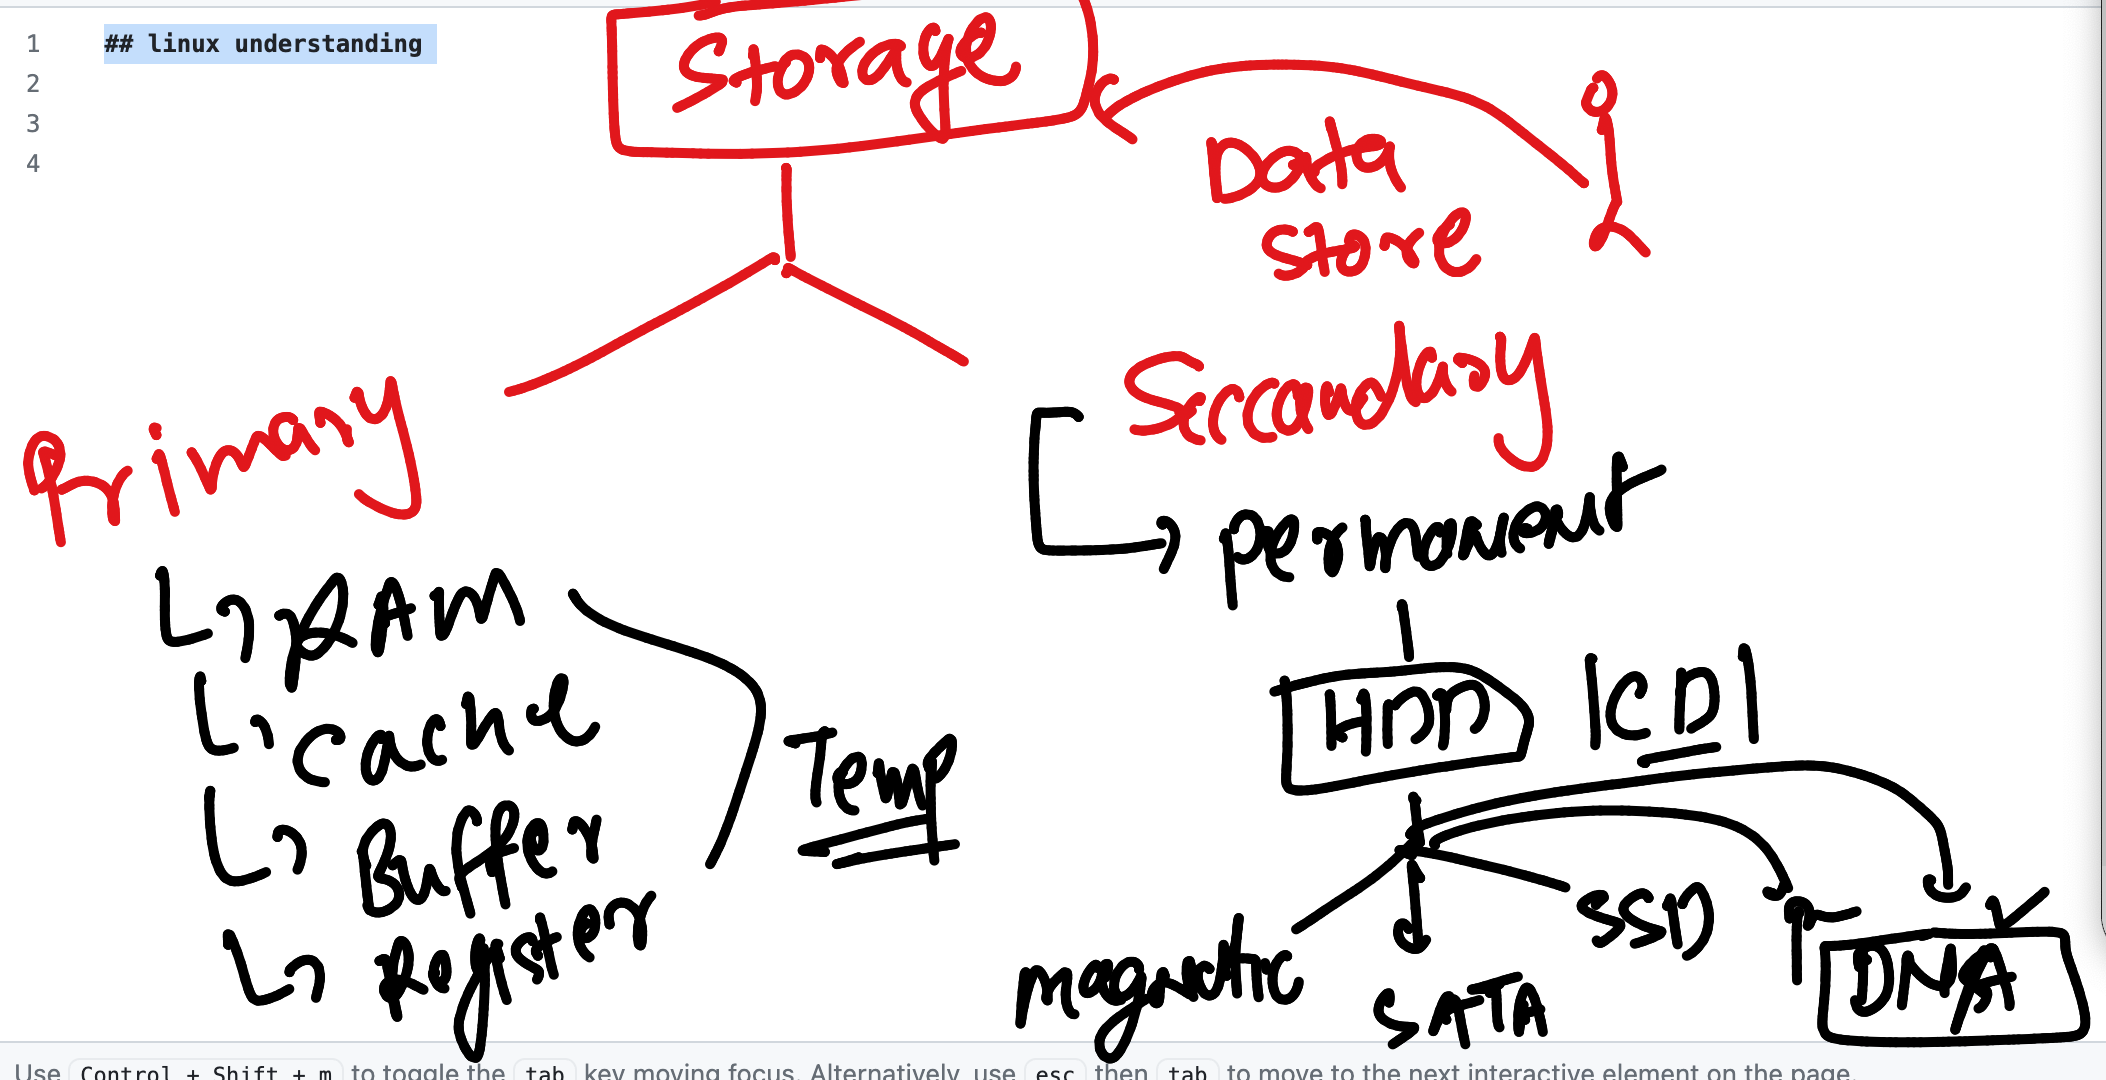 1 ## linux understanding
2
3
4
Storage
Data
store
Primary
Seccandary
permanent
RAM
cache
Buffer
Register
Temp
HDD
CD
magnetic
SATA
SSD
DNA
Use Control + Shift + m to toggle the tab key moving focus. Alternatively, use esc then tab to move to the next interactive element on the page.